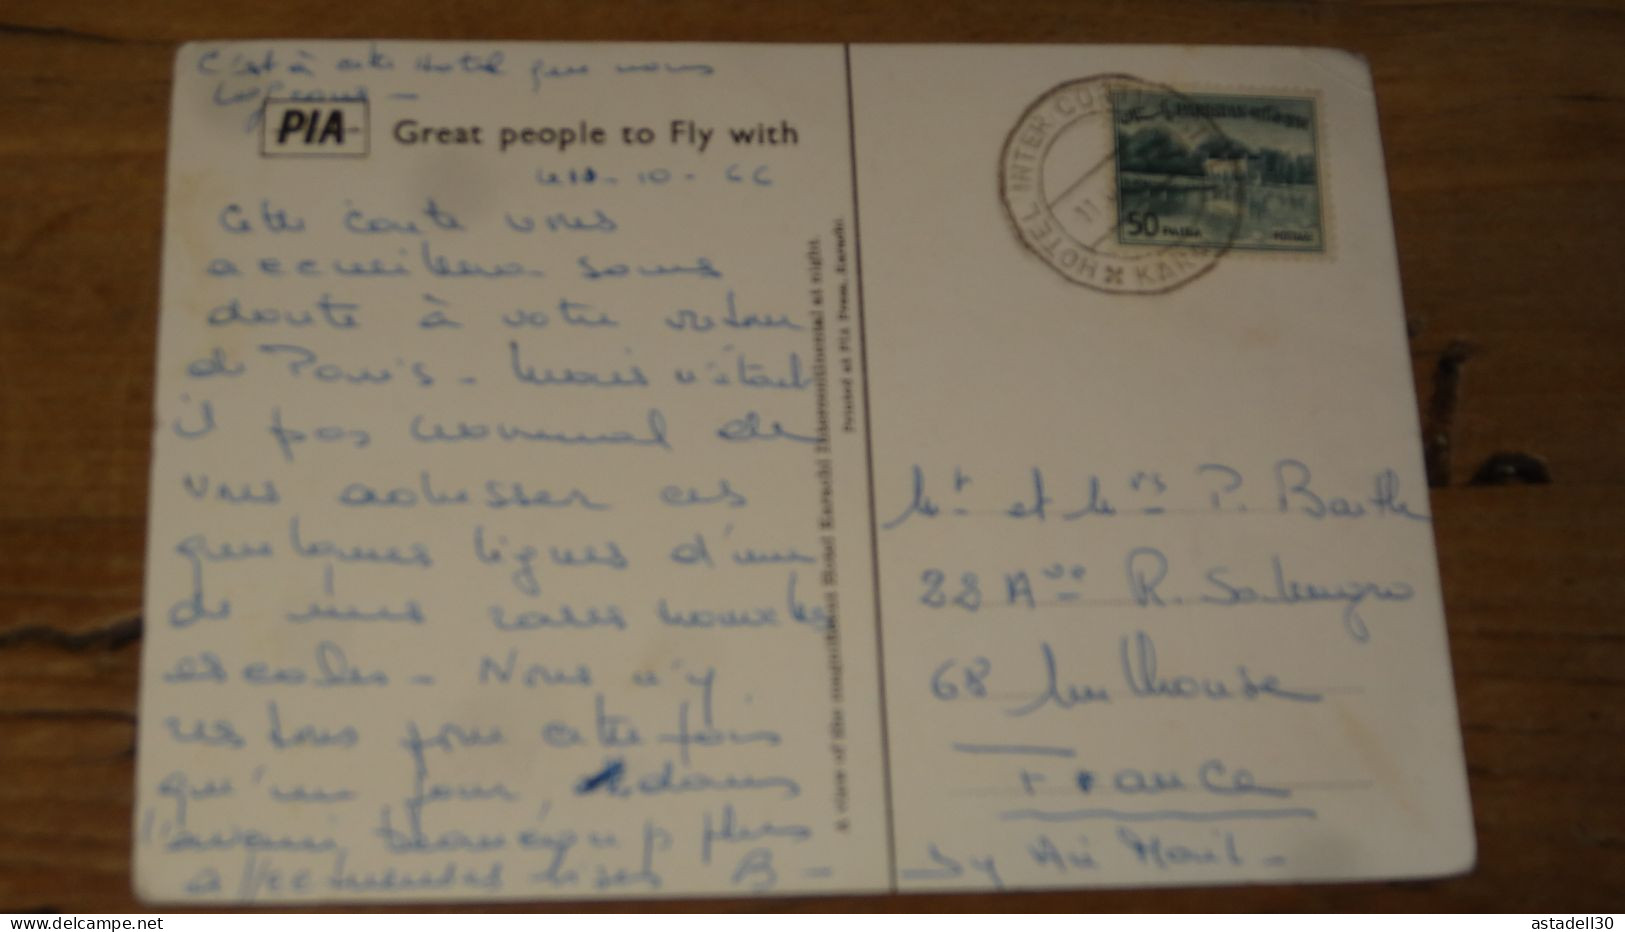 C'est à cette Hotel que nous
logeons -
PIA Great people to Fly with
10 - 66
Cette carte vous
accueillera sans
doute à votre retour
de Paris - Mais n'était
il pas normal de
vous adresser ces
quelques lignes d'une
de mes rares nouvelles
escales - Nous n'y
restons pour cette fois
qu'un jour, dans
l'avenir beaucoup plus
affectueuses bises B -
A view of the magnificent Hotel Karachi Intercontinental at night.
Printed at PIA Press, Karachi
HOTEL INTER CONTINENTAL KARACHI
11
PAKISTAN
50 PAISA POSTAGE
Mr et Mrs P. Barth
22 Ave R. Salengro
68 Mulhouse
France
By Air Mail -
astadell30